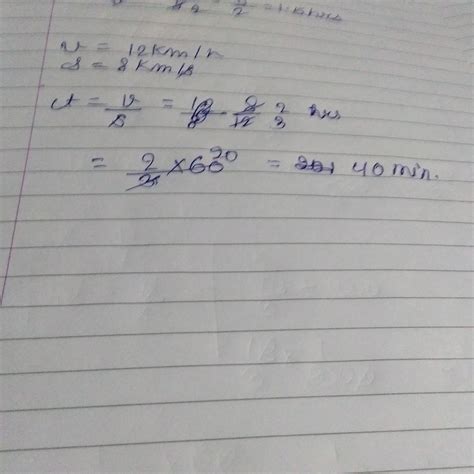 v = 12 km/h
s = 8 km/s
t = v/s = 12/8 - 8/12 2/3 hrs
= 2/3 × 60 20 = 40 min.